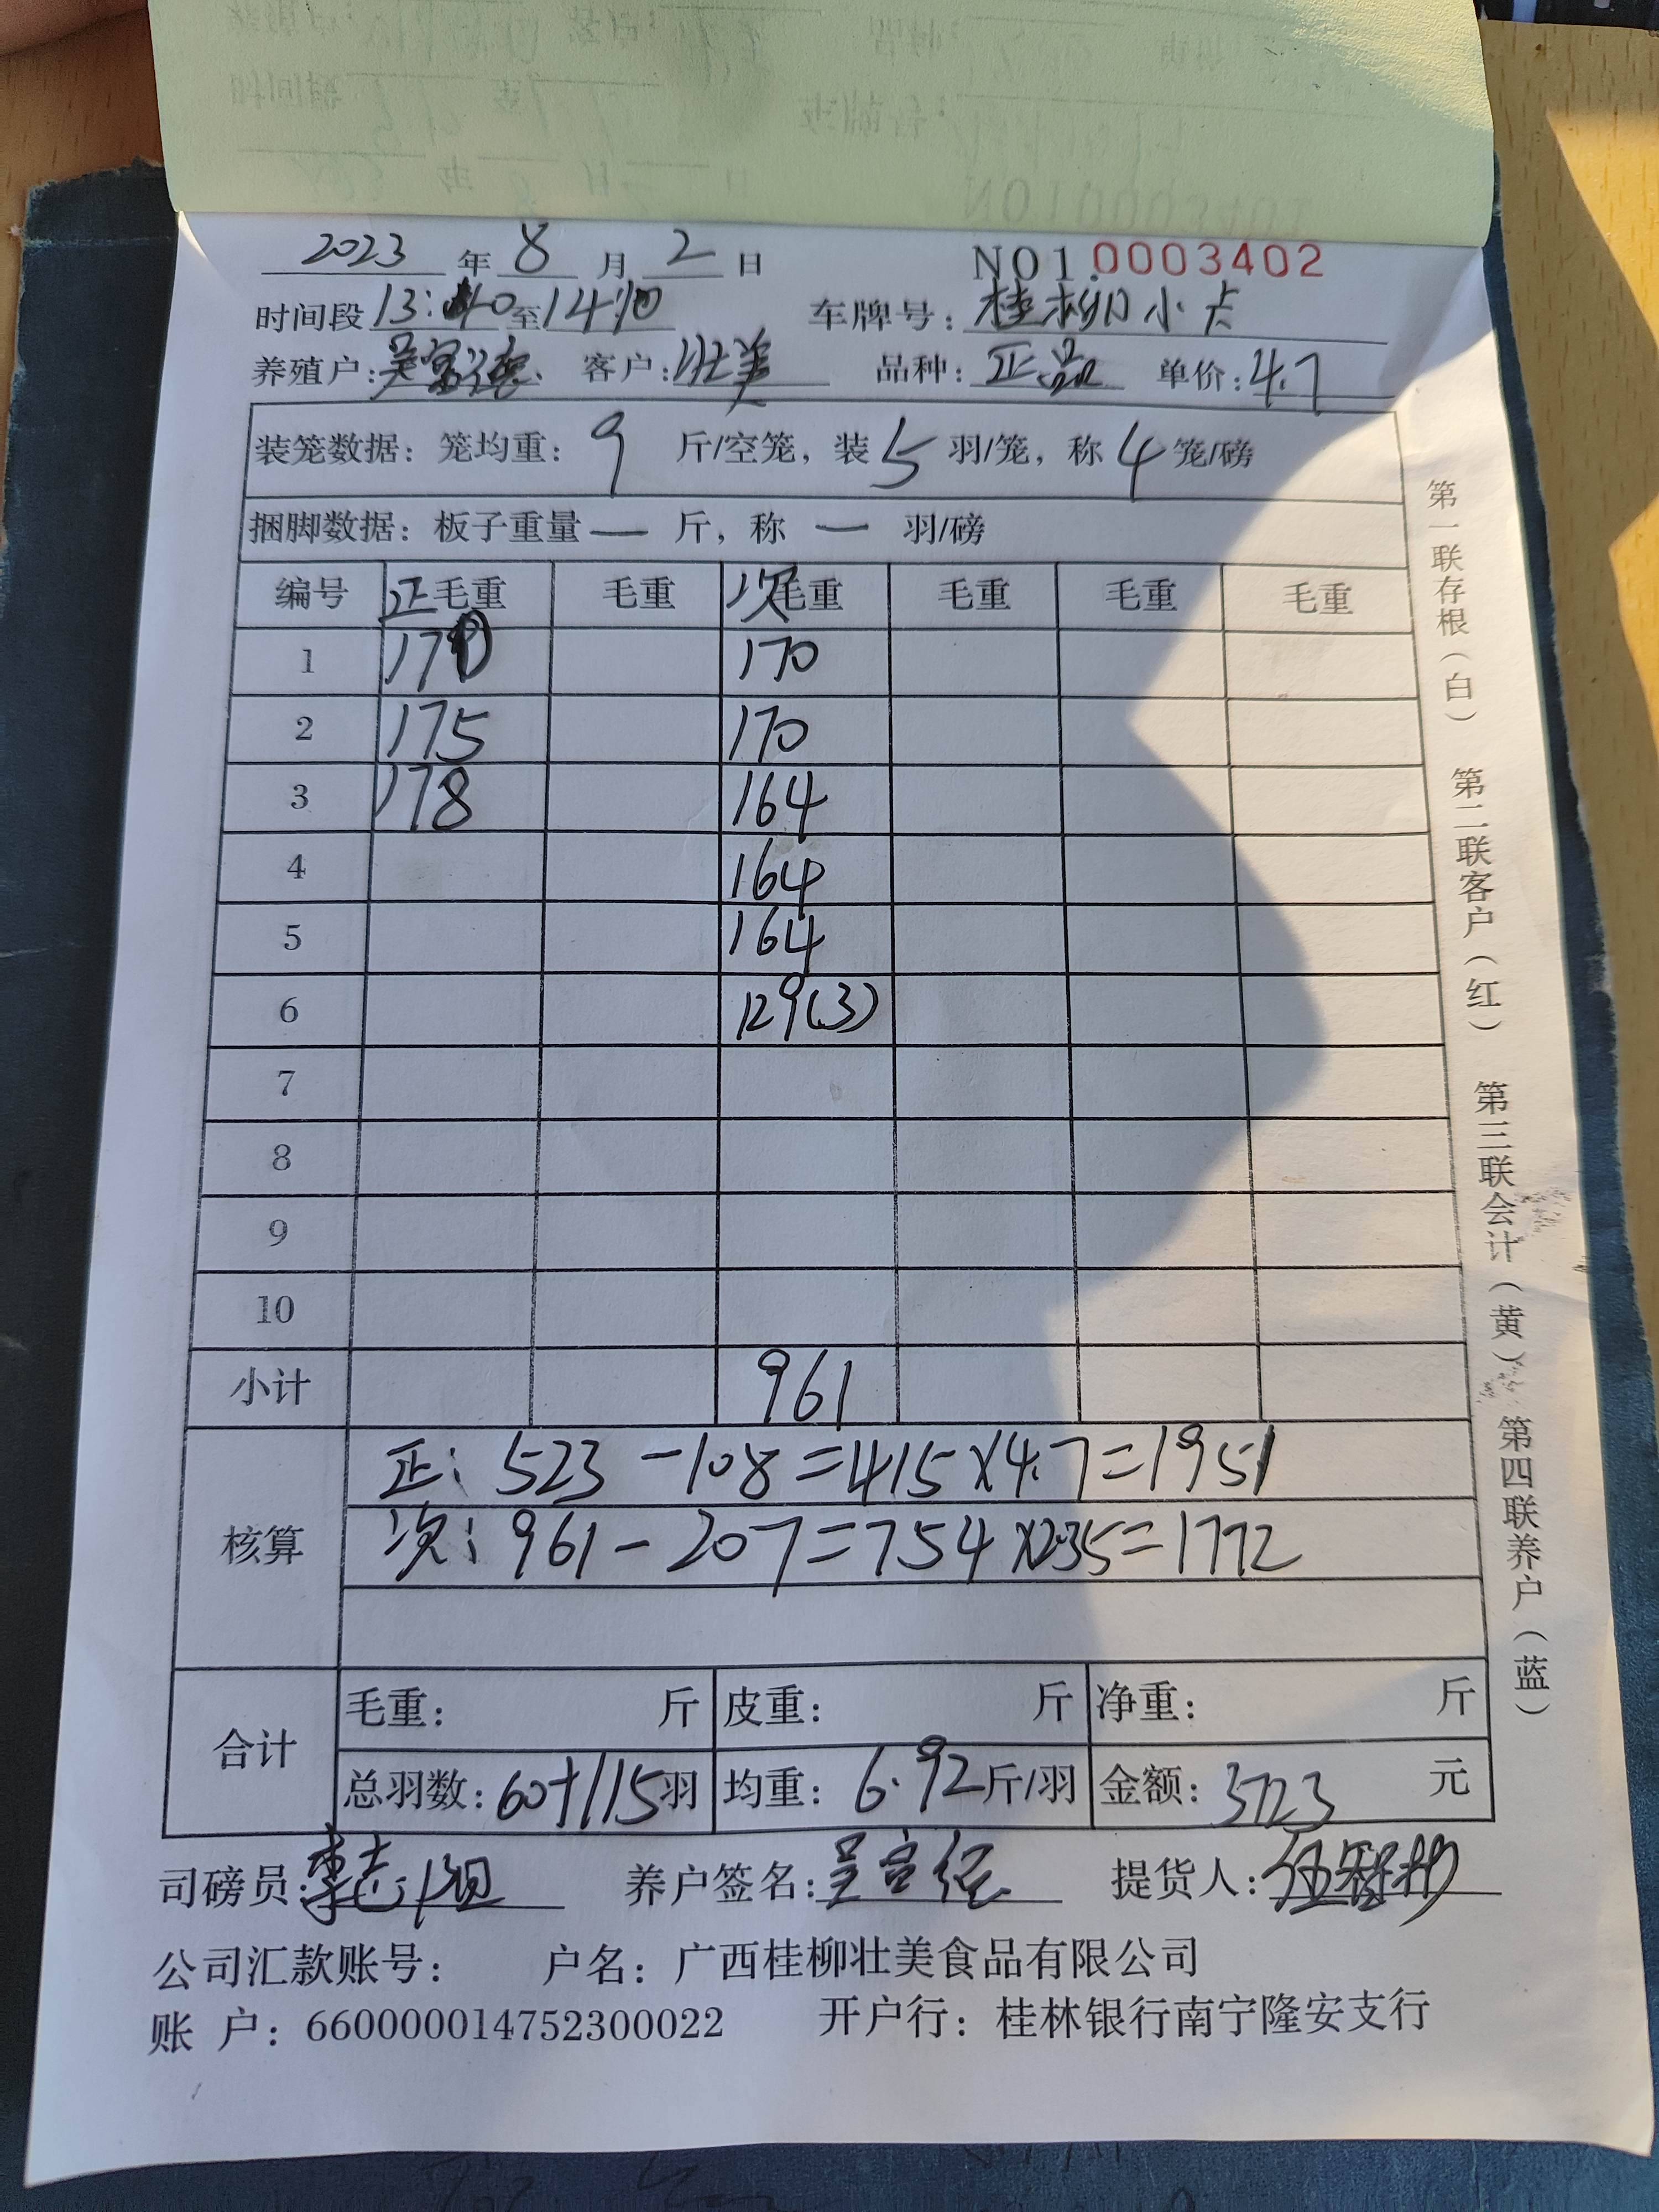 2023 年 8 月 2 日 NO1.0003402
时间段 13:40 至 14:10 车牌号：桂柳小卡
养殖户：吴 客户：壮美 品种：正品 单价：4.7
装笼数据：笼均重：9 斤/空笼，装 5 羽/笼，称 4 笼/磅
捆脚数据：板子重量 — 斤，称 — 羽/磅
编号 正毛重 毛重 次毛重 毛重 毛重 毛重
1 170 170
2 175 170
3 178 164
4 164
5 164
6 129(3)
7
8
9
10
小计 961
核算
正：523-108=415×4.7=1951
次：961-207=754×2.35=1772
合计
毛重： 斤 皮重： 斤 净重： 斤
总羽数：60+115羽 均重：6.92斤/羽 金额：3723 元
司磅员：李志 养户签名：吴 提货人：伍
公司汇款账号： 户名：广西桂柳壮美食品有限公司
账 户：660000014752300022 开户行：桂林银行南宁隆安支行
第一联存根（白） 第二联客户（红） 第三联会计（黄） 第四联养户（蓝）